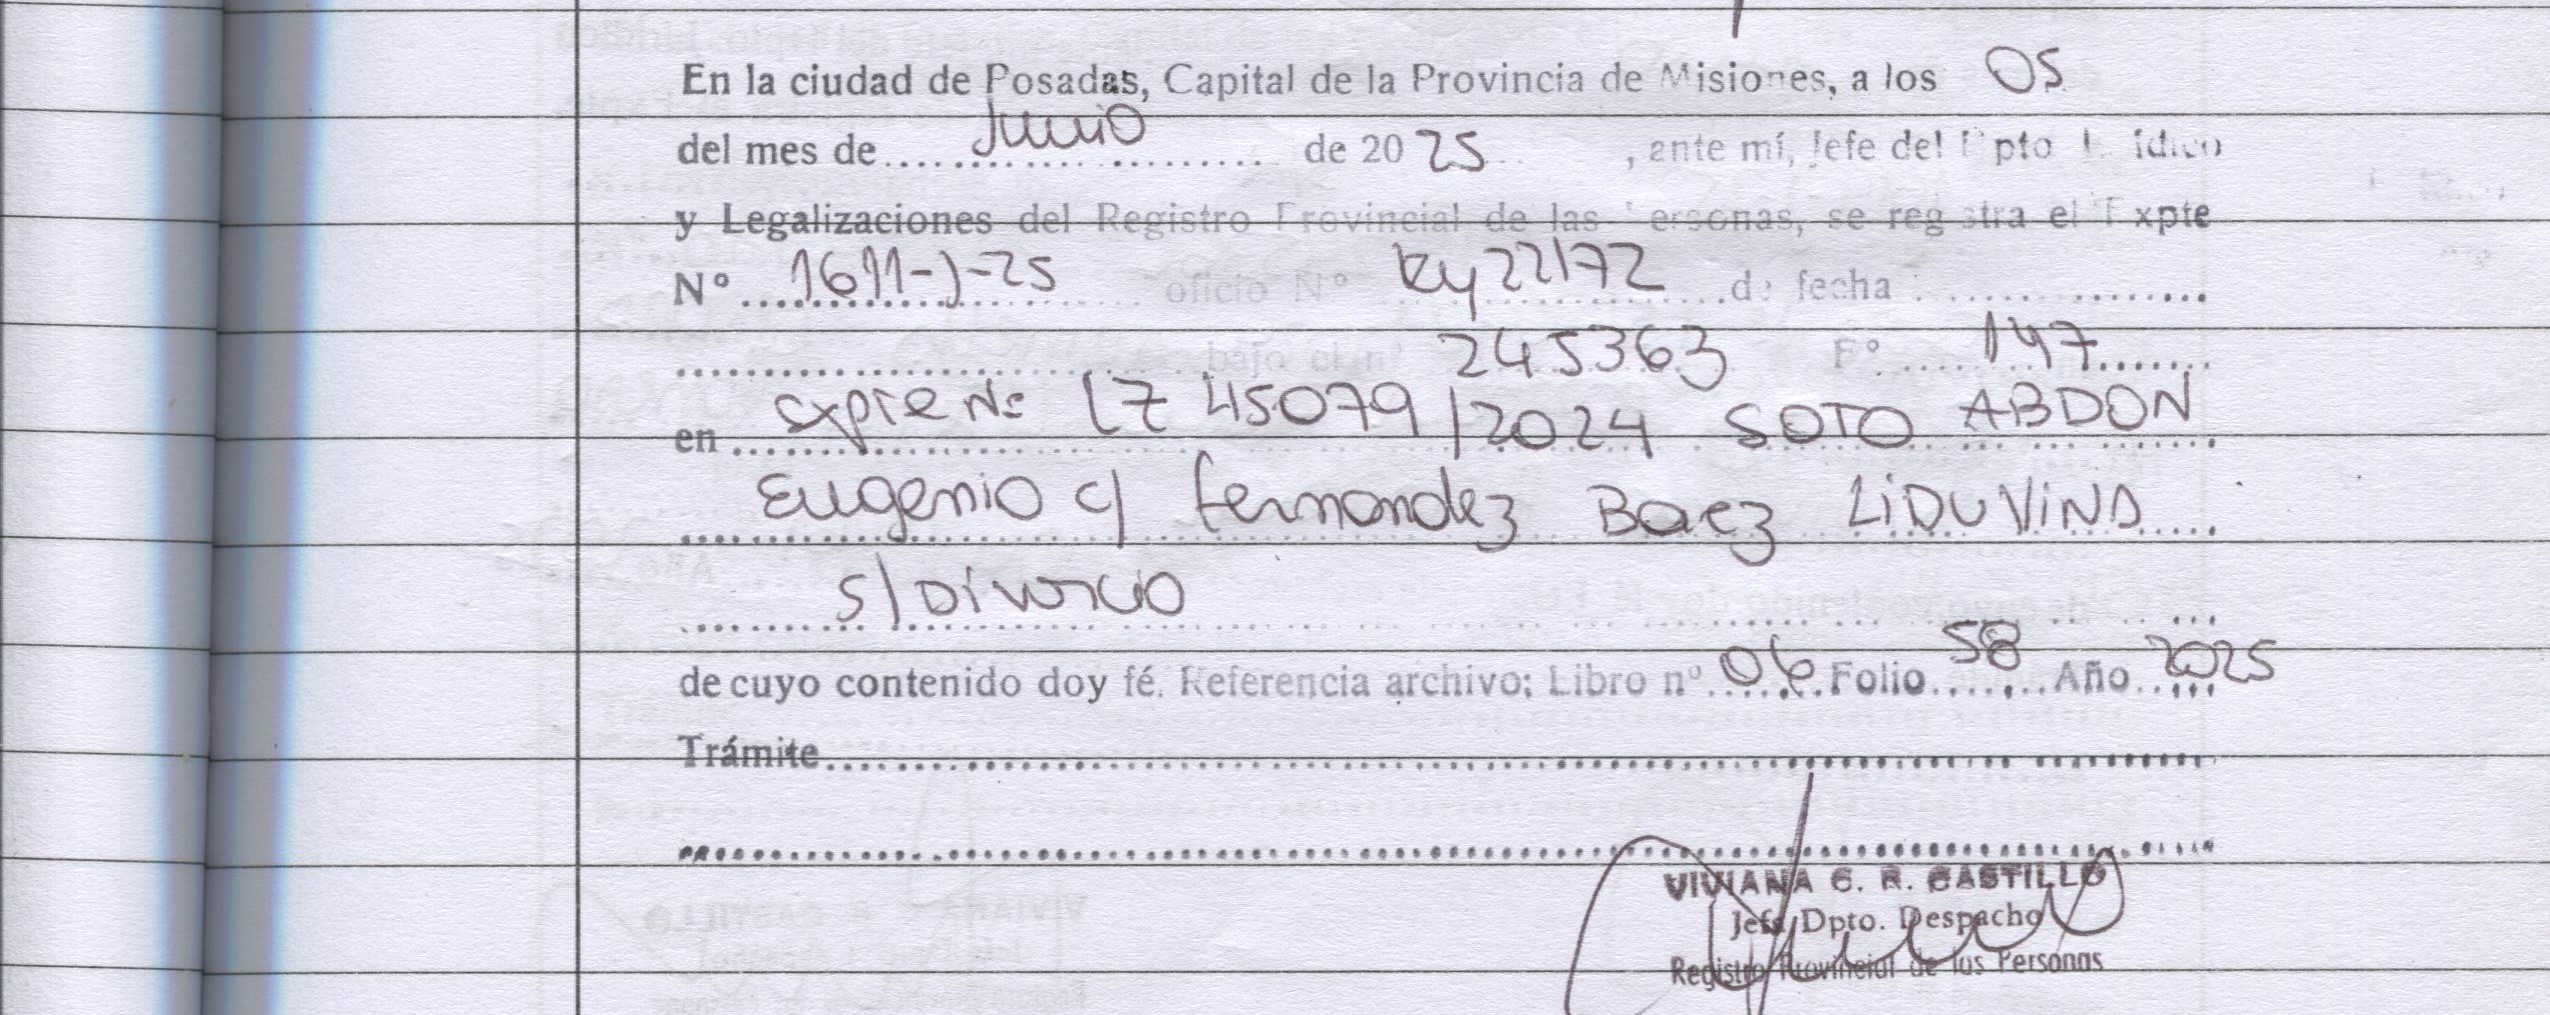 En la ciudad de Posadas, Capital de la Provincia de Misiones, a los 05
del mes de Junio de 2025, ante mí, Jefe del Dpto Jurídico
y Legalizaciones del Registro Provincial de las Personas, se registra el Expte
Nº 1611-J-25 oficio Nº 22172 de fecha
bajo el nº 245363 Fº 147
en expte Nº 45079/2024 SOTO ABDON
Eugenio c/ Fernandez Baez LIDUVINA
s/ Divorcio
de cuyo contenido doy fé. Referencia archivo; Libro nº 06 Folio 58 Año 2025
Trámite
VIVIANA C. R. CASTILLO
Jefa Dpto. Despacho
Registro Provincial de las Personas